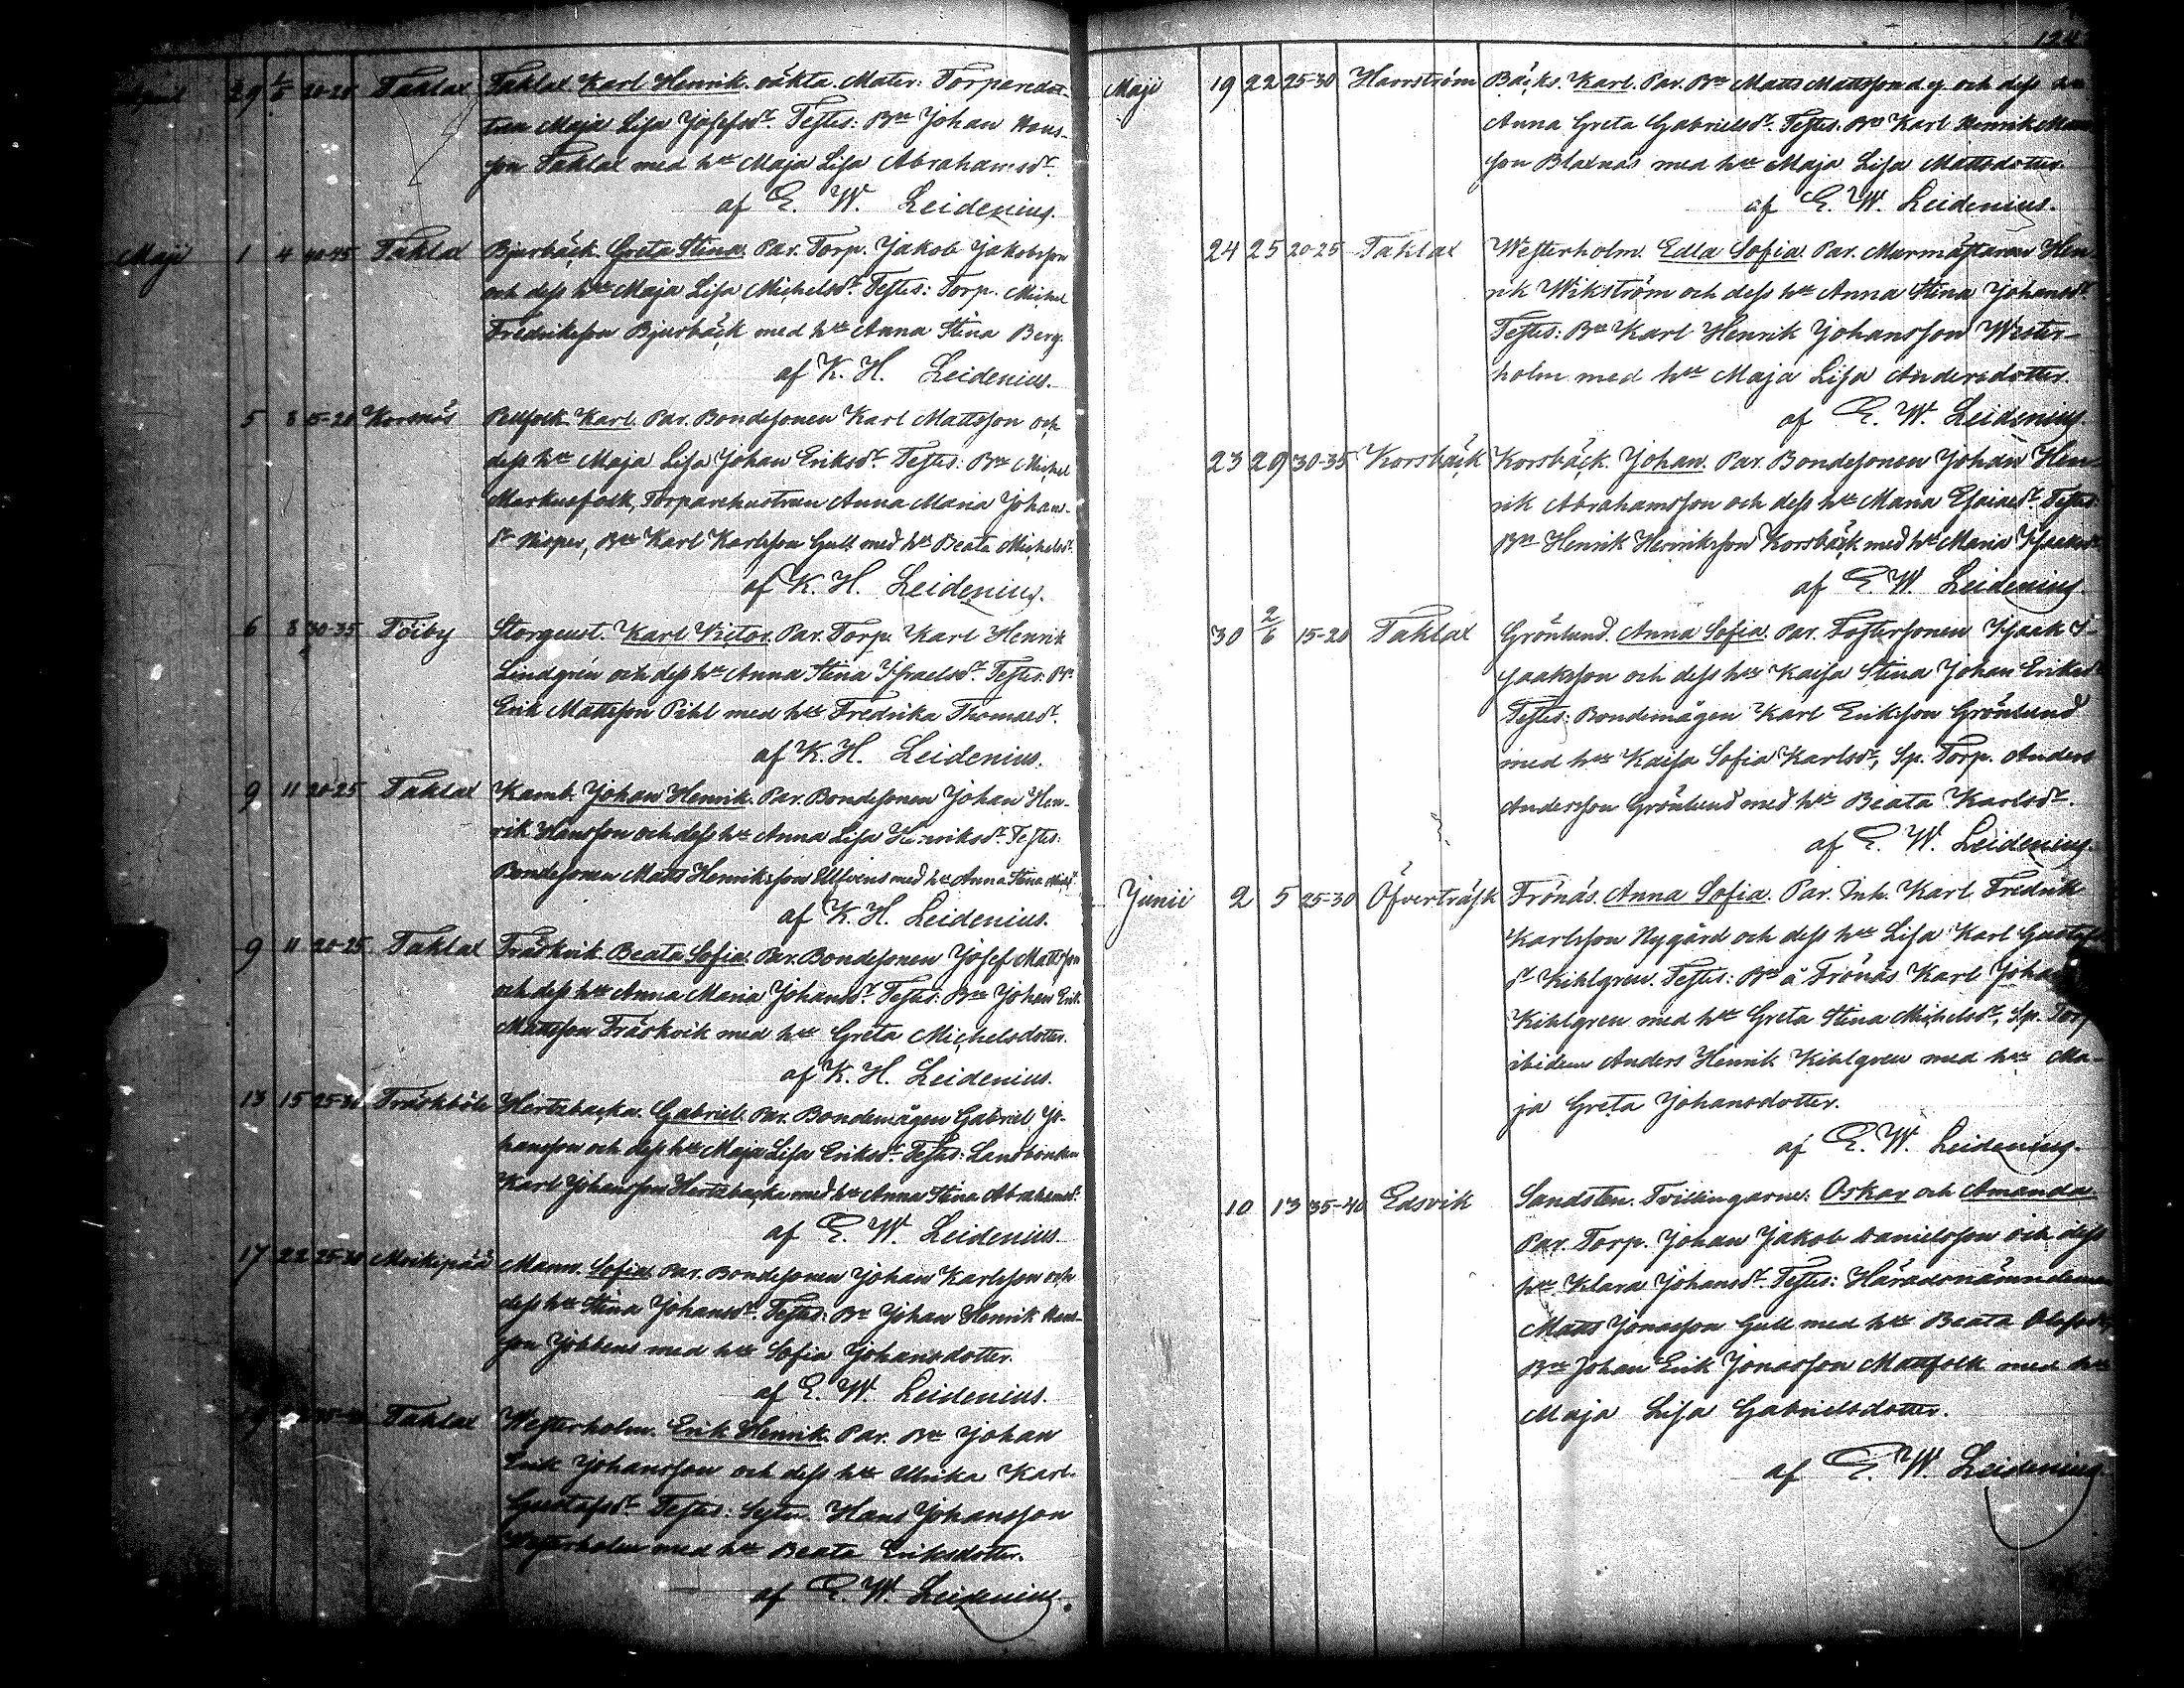 124
April 29 1/5 20-25 Taklax Taklax Karl Henrik. oäkta. Mater: Torparedot-
tren Maja Lisa Josefsdr. Testes: Bn Johan Hans-
son Taklax med hu Maja Lisa Abrahamsdr.
af E. W. Leidenius.
Maji 1 4 40-45 Taklax Bjurbäck. Greta Stina. Par. Torp. Jakob Jakobsson
och dess hu Maja Lisa Michelsdr. Testes: Torp. Michel
Fredriksson Bjurbäck med hu Anna Stina Berg.
af K. H. Leidenius.
5 8 15-20 Korsnäs Pellfolk. Karl. Par. Bondesonen Karl Mattsson och
dess hu Maja Lisa Johan Eriksdr. Testes: Bn Michel
Markusfolk, Torparehustrun Anna Maria Johans-
dr Nisper, Bn Karl Karlsson Gull med hu Beata Michelsdr.
af K. H. Leidenius.
6 8 30-35 Töiby Storgeust. Karl Victor. Par. Torp. Karl Henrik
Lindgrén och dess hu Anna Stina Israelsdr. Testes: Bn
Erik Mattsson Pihl med hu Fredrika Thomasdr.
af K. H. Leidenius.
9 11 20-25 Taklax Kamb. Johan Henrik. Par. Bondesonen Johan Hen-
rik Hansson och dess hu Anna Lisa Henriksdr. Testes:
Bondesonen Matts Henriksson Ulfvens med hu Anna Stina
af K. H. Leidenius.
9 11 20-25 Taklax Träskvik. Beata Sofia. Par. Bondesonen Josef Mattsson
och dess hu Anna Maria Johansdr. Testes: Bn Johan Erik
Mattsson Träskvik med hu Greta Michelsdotter.
af K. H. Leidenius.
13 15 25-30 Träskböle Hertsbacka. Gabriel. Par. Bondemågen Gabriel Jo-
hansson och dess hu Maja Lisa Eriksdr. Testes: Landbonden
Karl Johansson Hertsbacka med hu Anna Stina Abrahamsdr.
af E. W. Leidenius.
17 22 25-30 Moikipää Mann. Sofia. Par. Bondesonen Johan Karlsson och
dess hu Stina Johansdr. Testes: Bn Johan Henrik Hans-
son Jobbens med hu Sofia Johansdotter.
af E. W. Leidenius.
19 Taklax Westerholm. Erik Henrik. Par. Bn Johan
Erik Johansson och dess hu Ulrika Karl
Gustafsdr. Testes: Sytn. Hans Johansson
Westerholm med hu Beata Eriksdotter.
af E. W. Leidenius.
Maji 19 22 25-30 Harrström Bäcks. Karl. Par. Bn Matts Mattsson d.y. och dess hu
Anna Greta Gabrielsdr. Testes: Bn Karl Henrik Mans-
son Blaxnäs med hu Maja Lisa Mattsdotter.
af E. W. Leidenius.
24 25 20-25 Taklax Westerholm. Edla Sofia. Par. Murmästaren Hen-
rik Wikström och dess hu Anna Stina Johansdr.
Testes: Bn Karl Henrik Johansson Wester-
holm med hu Maja Lisa Andersdotter.
af E. W. Leidenius.
23 29 30-35 Korsbäck Korsbäck. Johan. Par. Bondesonen Johan Hen-
rik Abrahamsson och dess hu Maria Esaiasdr. Testes:
Bn Henrik Henriksson Korsbäck med hu Maria Isaaksdr.
af E. W. Leidenius.
30 2/6 15-20 Taklax Grönlund. Anna Sofia. Par. Fostersonen Isaak I-
saaksson och dess hu Kaisa Stina Johan Eriksdr.
Testes: Bondemågen Karl Eriksson Grönlund
med hu Kaisa Sofia Karlsdr, Sp. Torp. Anders
Andersson Grönlund med hu Beata Karlsdr.
af E. W. Leidenius.
Junii 2 5 25-30 Öfverträsk Frönäs. Anna Sofia. Par. Inh. Karl Fredrik
Karlsson Nygård och dess hu Lisa Karl Gustafs-
dr Kihlgren. Testes: Bn å Frönäs Karl Johan
Kihlgren med hu Greta Stina Michelsdr, Sp. Torp
ibidem Anders Henrik Kihlgren med hu Ma-
ja Greta Johansdotter.
af E. W. Leidenius.
10 13 35-40 Edsvik Sandsten. Tvillingarne: Oskar och Amanda
Par. Torp. Johan Jakob Danielsson och dess
hu Klara Johansdr. Testes: Häradsnämndeman
Matts Jonasson Gull med hu Beata Olofsdr,
Bn Johan Erik Jonasson Mattfolk med hu
Maja Lisa Gabrielsdotter.
af E. W. Leidenius.